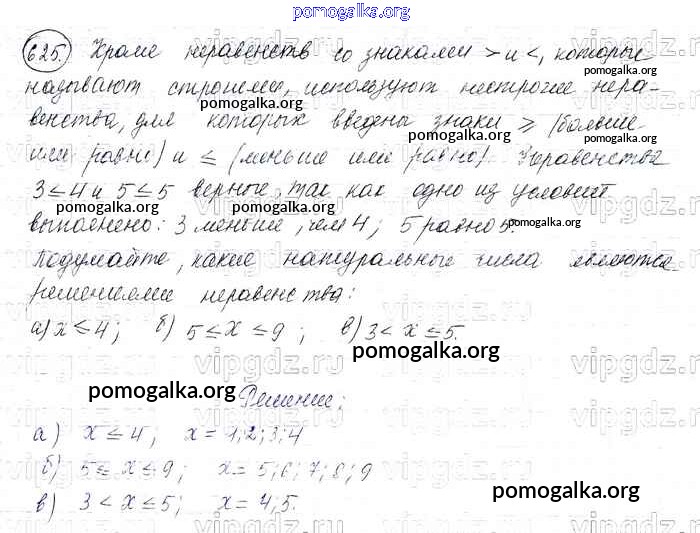 pomogalka.org
625. Кроме неравенств со знаками > и <, которые
pomogalka.org
называют строгими, используют нестрогие нера-
pomogalka.org
венства, для которых введены знаки ≥ (больше
pomogalka.org
или равно) и ≤ (меньше или равно). Неравенства
pomogalka.org
3 ≤ 4 и 5 ≤ 5 верные, так как одно из условий
pomogalka.org pomogalka.org
выполнено: 3 меньше, чем 4; 5 равно 5.
pomogalka.org
Подумайте, какие натуральные числа являются
решениями неравенства:
а) x ≤ 4; б) 5 ≤ x ≤ 9; в) 3 < x ≤ 5.
pomogalka.org
pomogalka.org
Решение:
а) x ≤ 4; x = 1; 2; 3; 4
б) 5 ≤ x ≤ 9; x = 5; 6; 7; 8; 9
в) 3 < x ≤ 5; x = 4; 5.
pomogalka.org
vipgdz.com